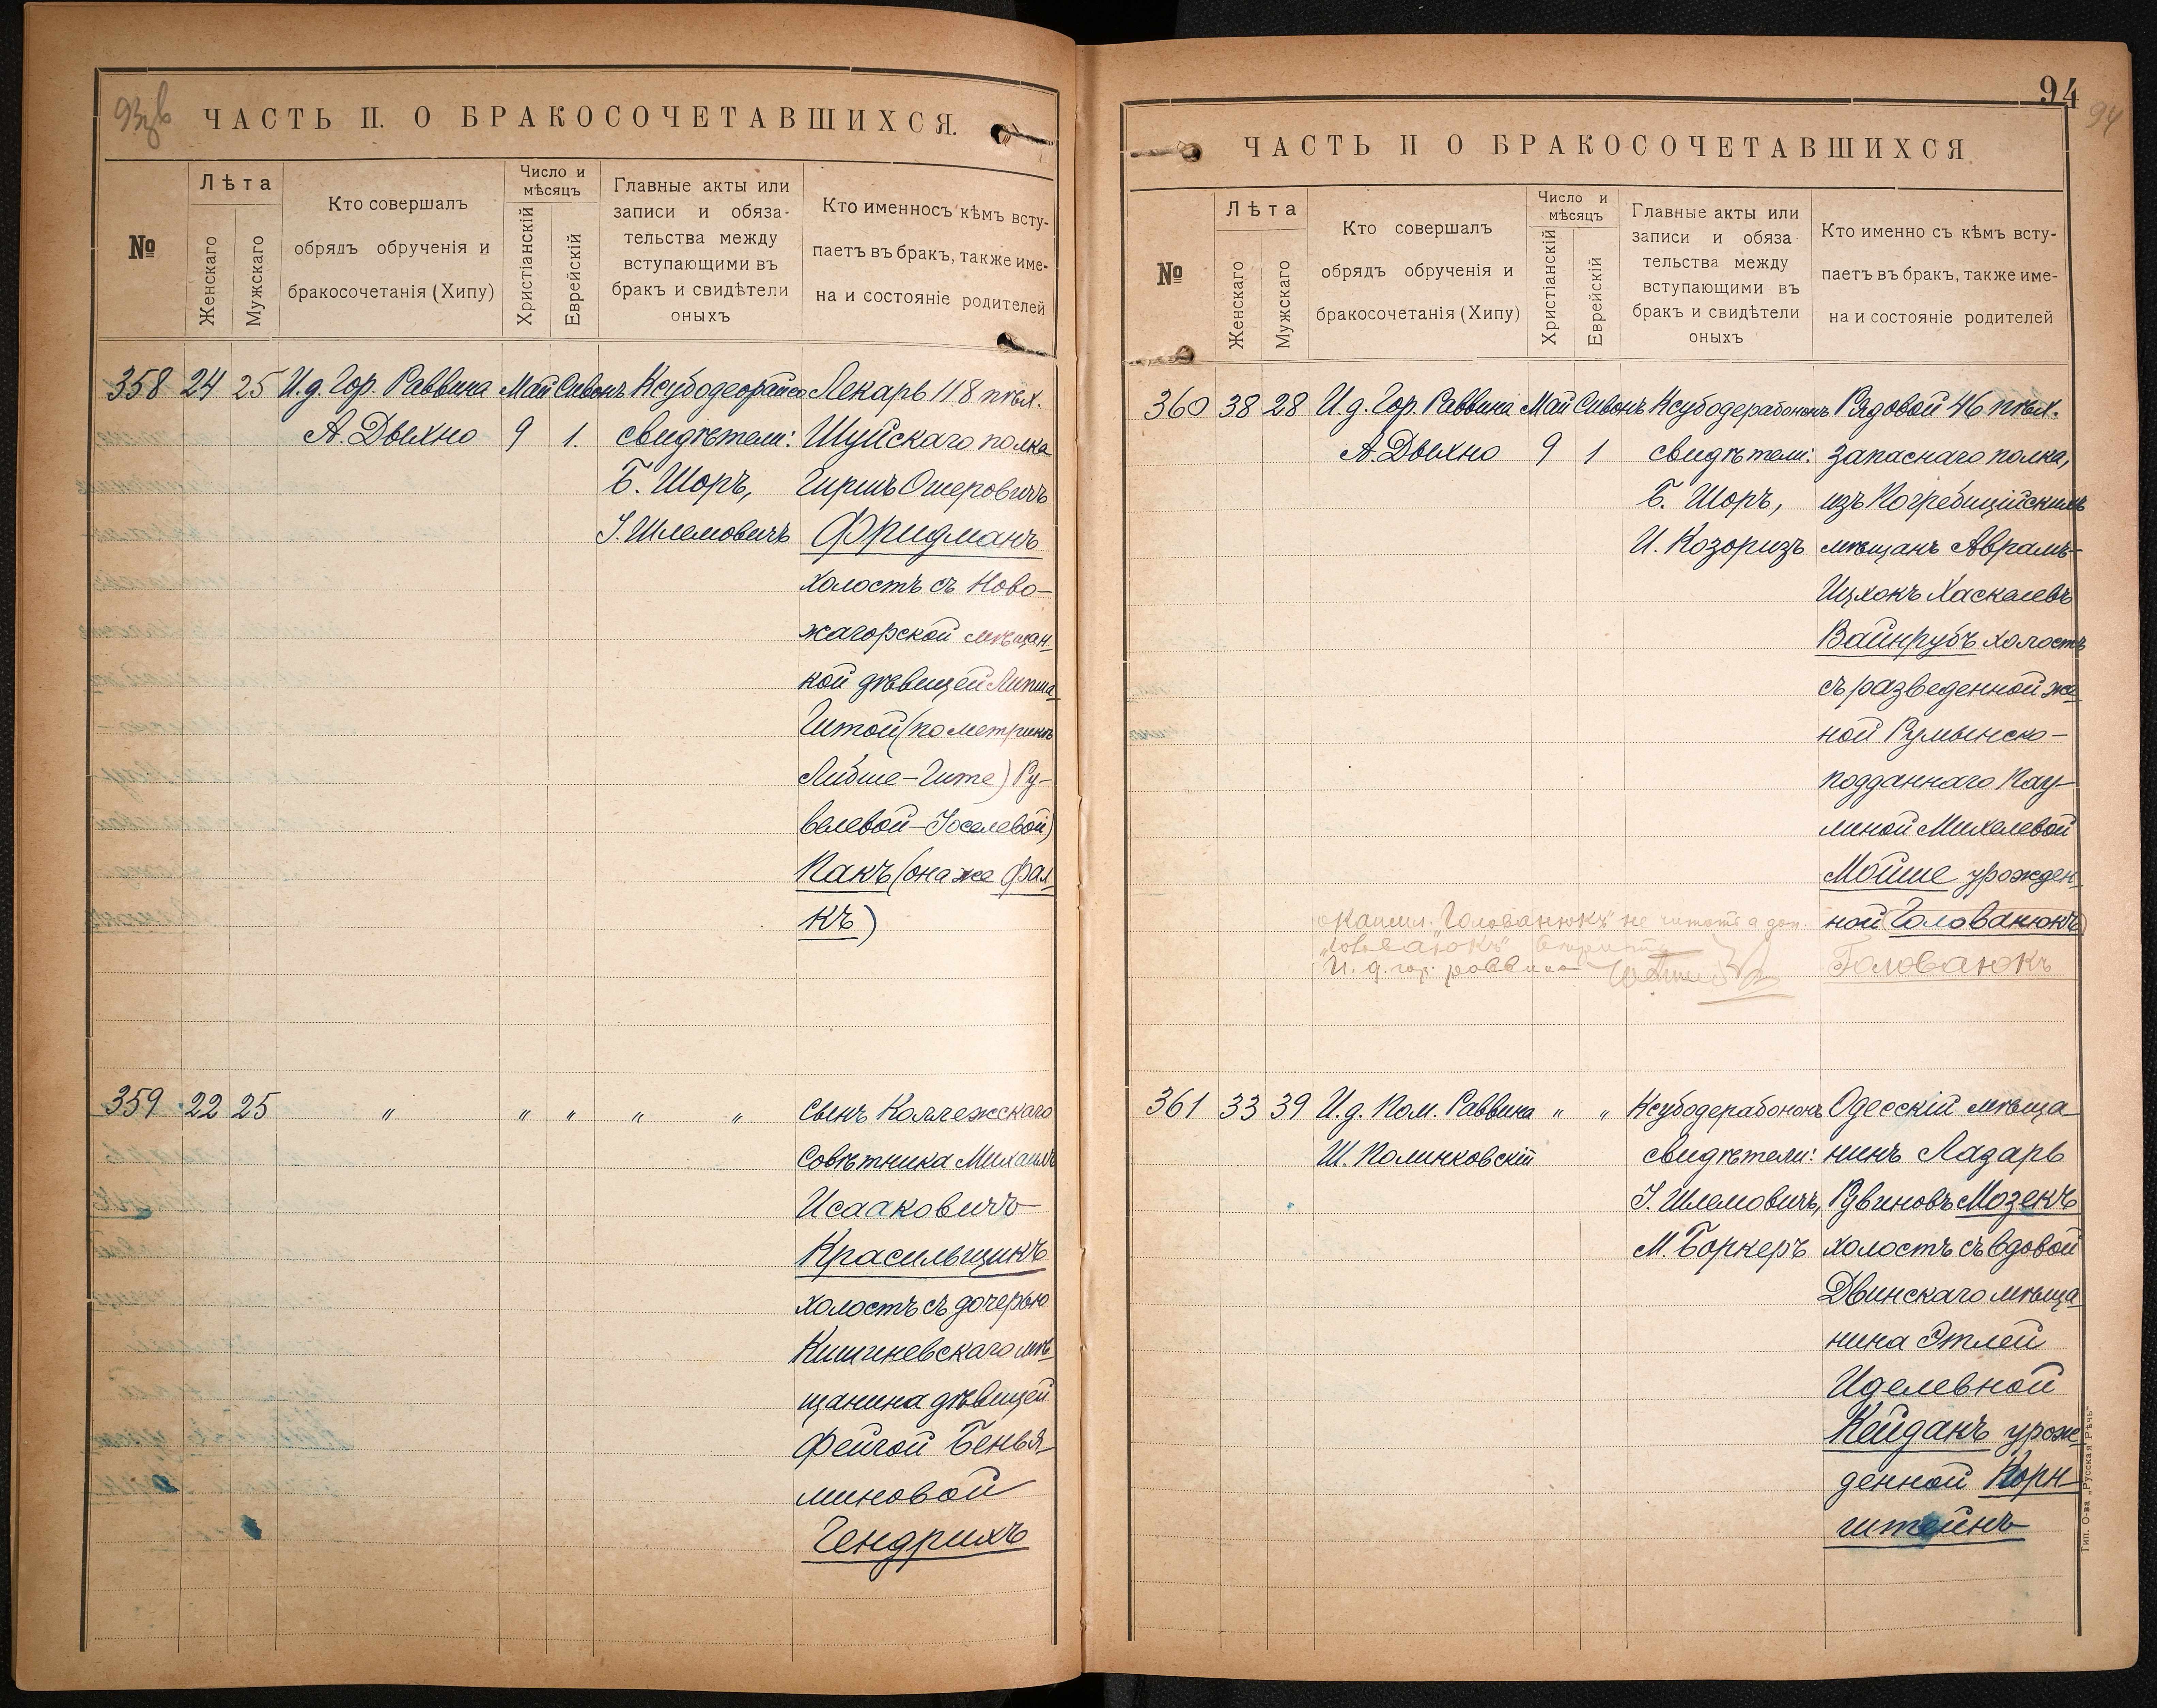 93 об
ЧАСТЬ II. О БРАКОСОЧЕТАВШИХСЯ.
№
Лѣта
Женскаго
Мужскаго
Кто совершалъ
обрядъ обрученія и
бракосочетанія (Хипу)
Число и
мѣсяцъ
Христіанскій
Еврейскій
Главные акты или
записи и обяза-
тельства между
вступающими въ
бракъ и свидѣтели
оныхъ
Кто именно съ кѣмъ всту-
паетъ въ бракъ, также име-
на и состояніе родителей
358 24 25 И.д. Гор. Раввина Май Сивонъ Ксубодеорайсо Лекарь 118 пѣх.
А. Дыхно 9 1. свидѣтели: Шуйскаго полка
Б. Шоръ, Гиршъ Ошеровичъ
І. Шлемовичъ Фридманъ
холостъ съ Ново-
жагорской мѣщан-
кой дѣвицей Липша-
Гитой (по метрикѣ
Либше-Гите) Ру-
велевой-Іоселевой)
Пакъ (она же Фал-
къ)
359 22 25 " " " " " сынъ Коллежскаго
Совѣтника Михаилъ
Исааковичъ
Красильщикъ
холостъ съ дочерью
Кишиневскаго мѣ-
щанина дѣвицей
Фейгой Бенья-
миновой
Гендрихъ
94
94
ЧАСТЬ II О БРАКОСОЧЕТАВШИХСЯ
№
Лѣта
Женскаго
Мужскаго
Кто совершалъ
обрядъ обрученія и
бракосочетанія (Хипу)
Число и
мѣсяцъ
Христіанскій
Еврейскій
Главные акты или
записи и обяза
тельства между
вступающими въ
бракъ и свидѣтели
оныхъ
Кто именно съ кѣмъ всту-
паетъ въ бракъ, также име-
на и состояніе родителей
360 38 28 И.д. Гор. Раввина Май Сивонъ Ксубодерабононъ Рядовой 46 пѣх.
А. Дыхно 9 1 свидѣтели: запаснаго полка,
Б. Шоръ, изъ Погребищійскихъ
И. Козоризъ мѣщанъ Аврамъ-
Ицхокъ Хаскелевъ
Вайнрубъ холостъ
съ разведенной же-
ной Румынско-
подданнаго Пау-
линой Михелевой
Мойше урожден-
"Голованюкъ" не читать а ной (Голованюкъ)
"Головаюкъ"
И. д. гор. раввина Головаюкъ
361 33 39 И.д. Пом. Раввина " " Ксубодерабононъ Одесскій мѣща
Ш. Полинковскій свидѣтели: нинъ Лазарь
І. Шлемовичъ, Рувиновъ Мозекъ
М. Боркеръ холостъ съ вдовой
Двинскаго мѣща
нина Этлей
Иделевной
Кейданъ урож-
денной Корн-
штейнъ
Тип. О-ва „Русская Рѣчь"